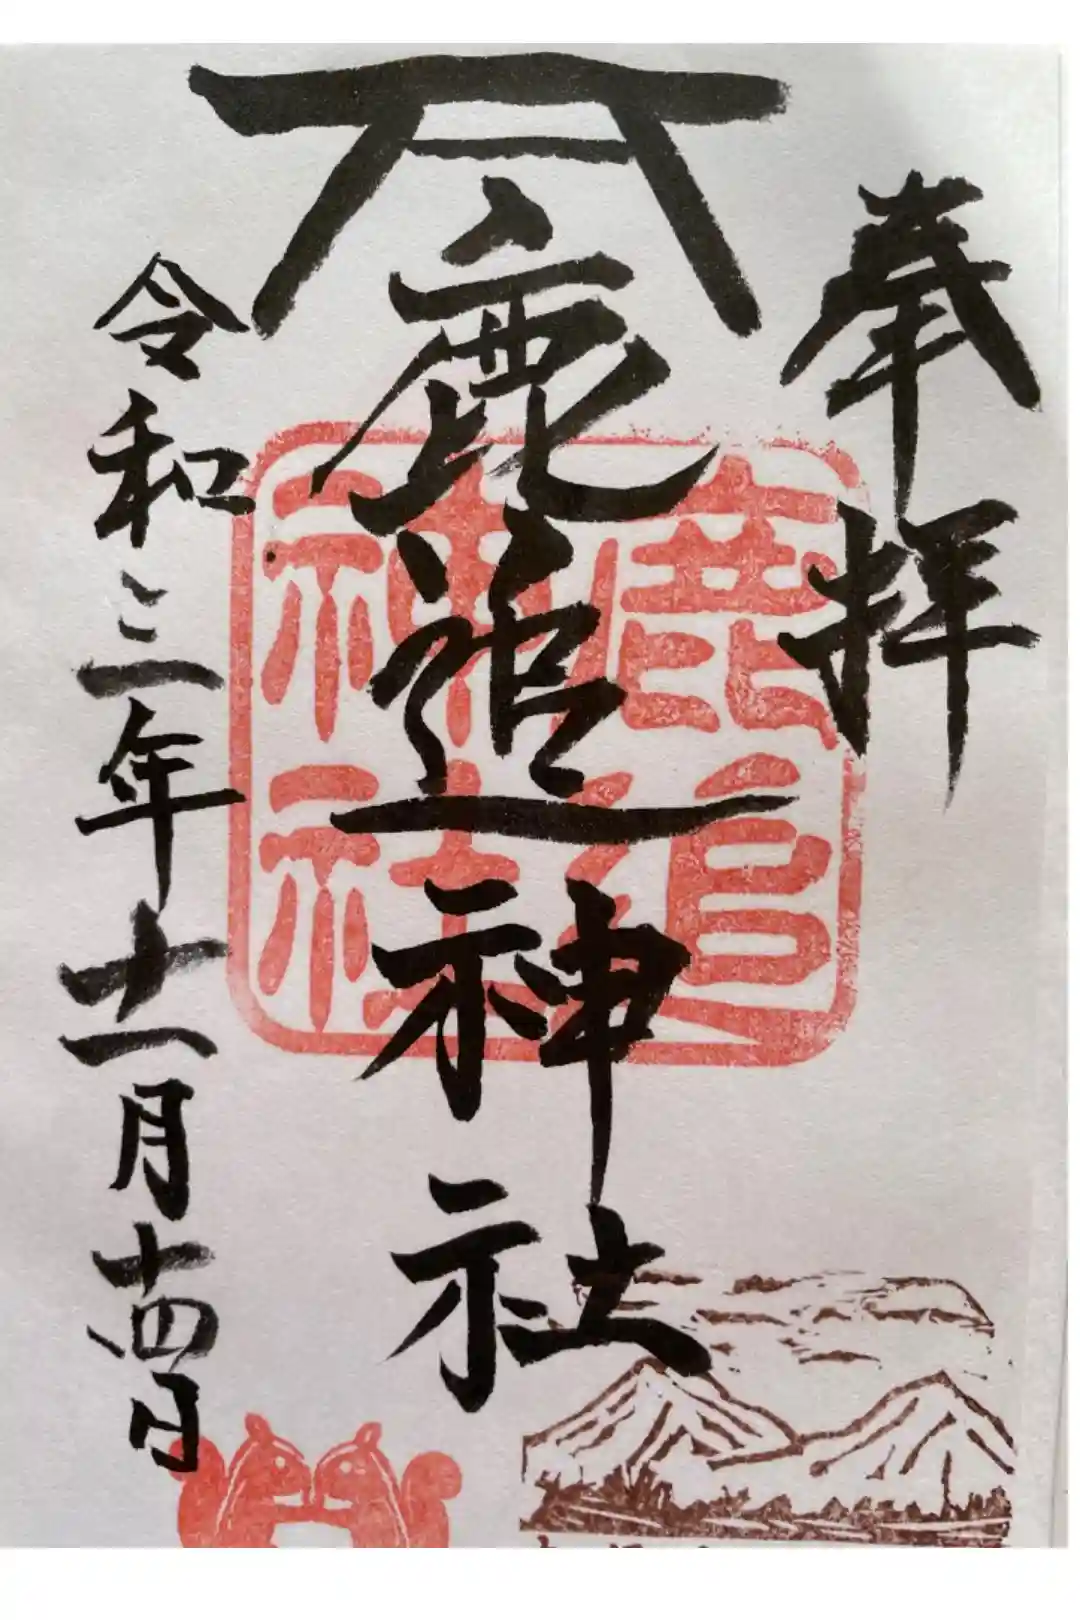 奉拝
鹿追神社
鹿追
神社
令和三年十一月十四日